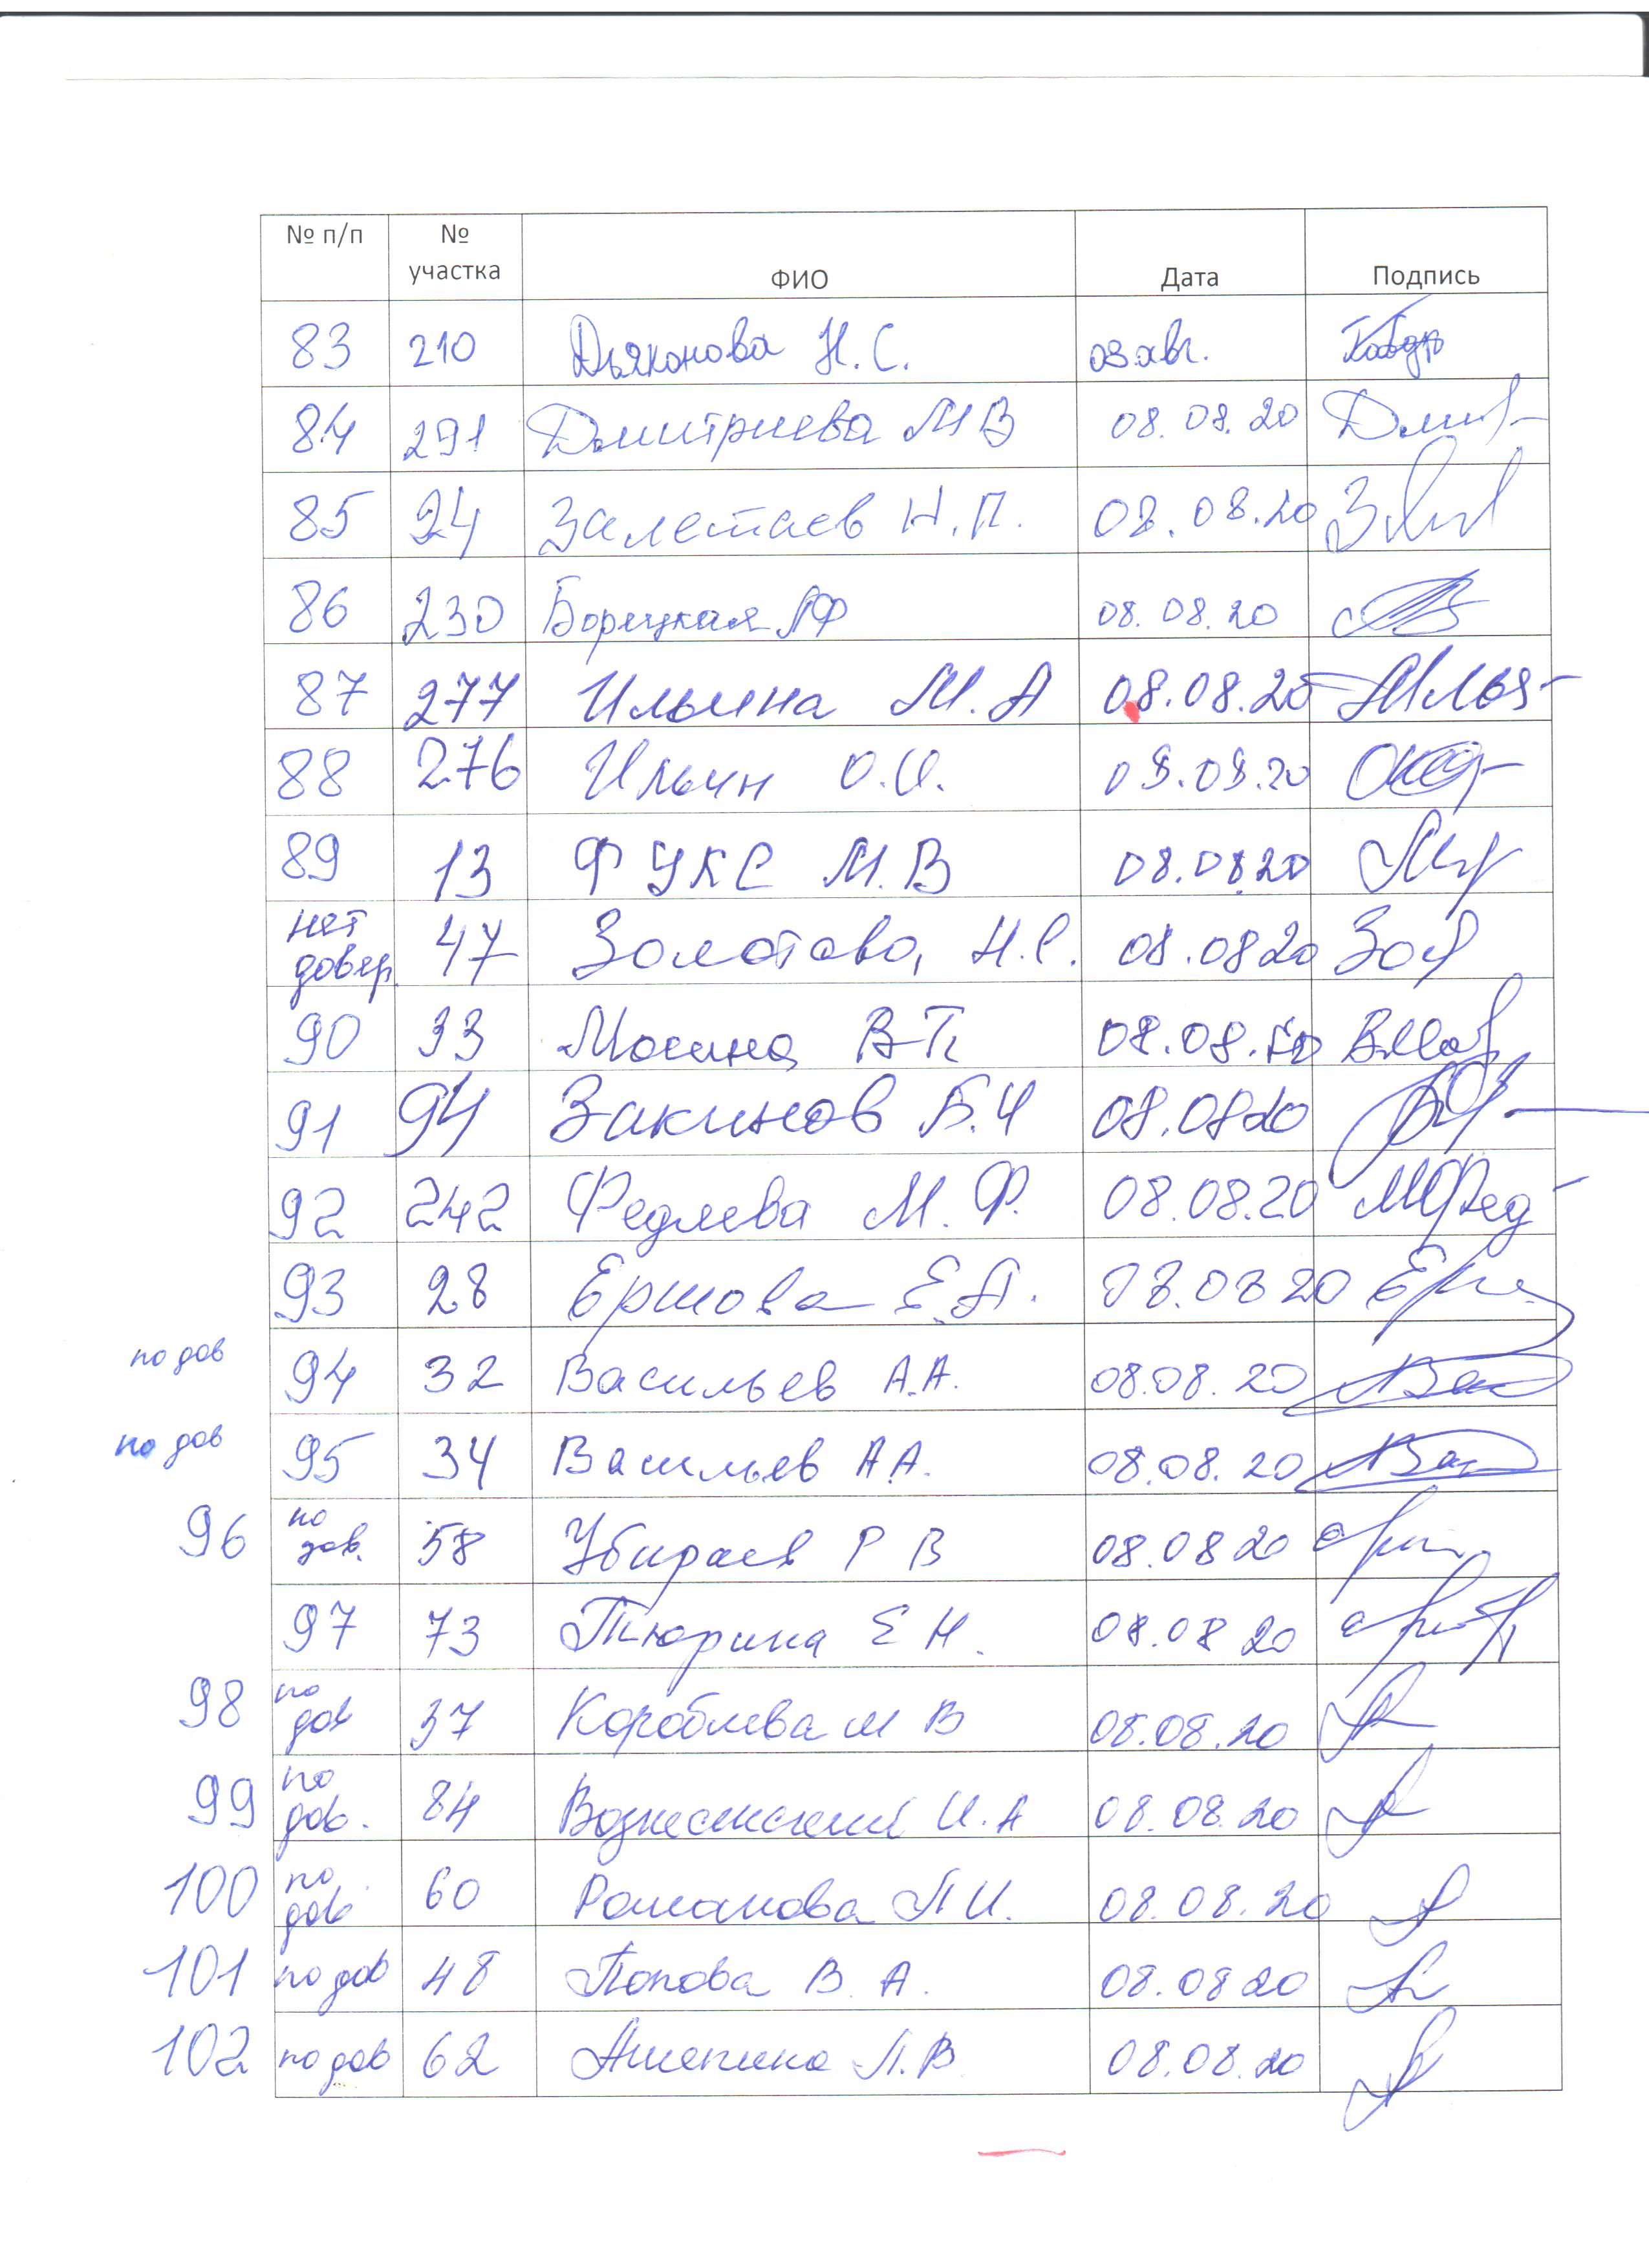 № п/п № участка ФИО Дата Подпись
83 210 Дьяконова Н.С. 08 авг.
84 291 Дмитриева М В 08.08.20
85 24 Залетаев Н.П. 08.08.20
86 230 Борецкая ЛФ 08.08.20
87 277 Ильина М.А 08.08.20
88 276 Ильин О.И. 08.08.20
89 13 ФУКС М.В 08.08.20
нет довер. 47 Золотова, Н.С. 08.08 20
90 33 Мосина В П 08.08.20
91 94 Закинов Б.И 08.08 20
92 242 Федяева М.Ф. 08.08.20
93 28 Ершова Е.А. 08.08 20
по дов 94 32 Васильев А.А. 08.08.20
по дов 95 34 Васильев А.А. 08.08.20
96 по дов. 58 Убираев Р В 08.08 20
97 73 Тюрина Е Н. 08.08 20
98 по дов 37 Кораблева М В 08.08.20
99 по дов. 84 Вознесенский И.А 08.08.20
100 по дов. 60 Романова Л И. 08.08.20
101 по дов 48 Попова В. А. 08.08 20
102 по дов 62 Л.В 08.08.20